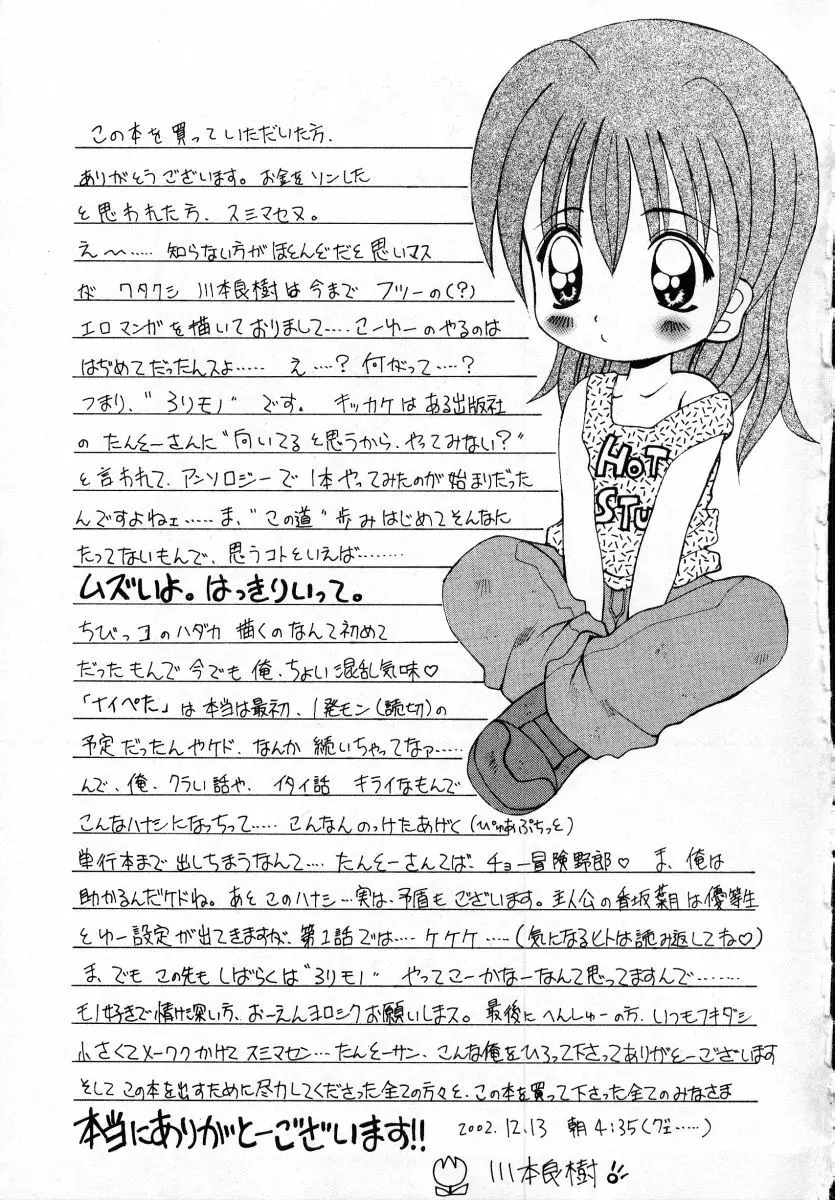 この本を買っていただいた方、
ありがとうございます。お金をソンした
と思われた方、スミマセヌ。
え〜……知らない方がほとんどだと思いマス
が ワタクシ 川本良樹は今まで フツーの(?)
エロマンガを描いておりまして……こーゆーのやるのは
はぢめてだったんスよ…… え…? 何がって…?
つまり、"ろりモノ" です。 キッカケはある出版社
のたんとーさんに"向いてると思うから、やってみない?"
と言われて、アンソロジーで1本やってみたのが始まりだった
んですよねェ……ま、"この道"歩みはじめてそんなに
たってないもんで、思うコトといえば………
ムズいよ。はっきりいって。
ちびっ子のハダカ 描くのなんて初めて
だったもんで今でも俺、ちょい混乱気味♡
「ナイぺた」は本当は最初、1発モン(読切)の
予定だったんやケド、なんか 続いちゃってなァ……
んで、俺、クラい話や、イタイ話 キライなもんで
こんなハナシになっちって…… こんなんのっけたあげく(ぴゅあぷちっと)
単行本まで出しちまうなんて…たんとーさんてば、チョー冒険野郎♡ ま、俺は
助かるんだケドね。あと このハナシ…実は、矛盾もございます。主人公の香坂葉月は優等生
とゆー設定が出てきますが、第1話では……ケケケ……(気になるヒトは読み返してね♡)
ま、でも この先もしばらくは"ろりモノ" やってこーかなーなんて思ってますんで………
モノ好きで情け深い方、おーえんヨロシクお願いしまス。最後にへんしゅーの方、いつもフキダシ
小さくてメーワクかけてスミマセン…たんとーサン、こんな俺をひろって下さってありがとーございます
そして この本を出すために尽力してくださった全ての方々と、この本を買って下さった全てのみなさま
本当にありがとーございます!! 2002.12.13 朝4:35(グエ……)
川本良樹
HOT
STU